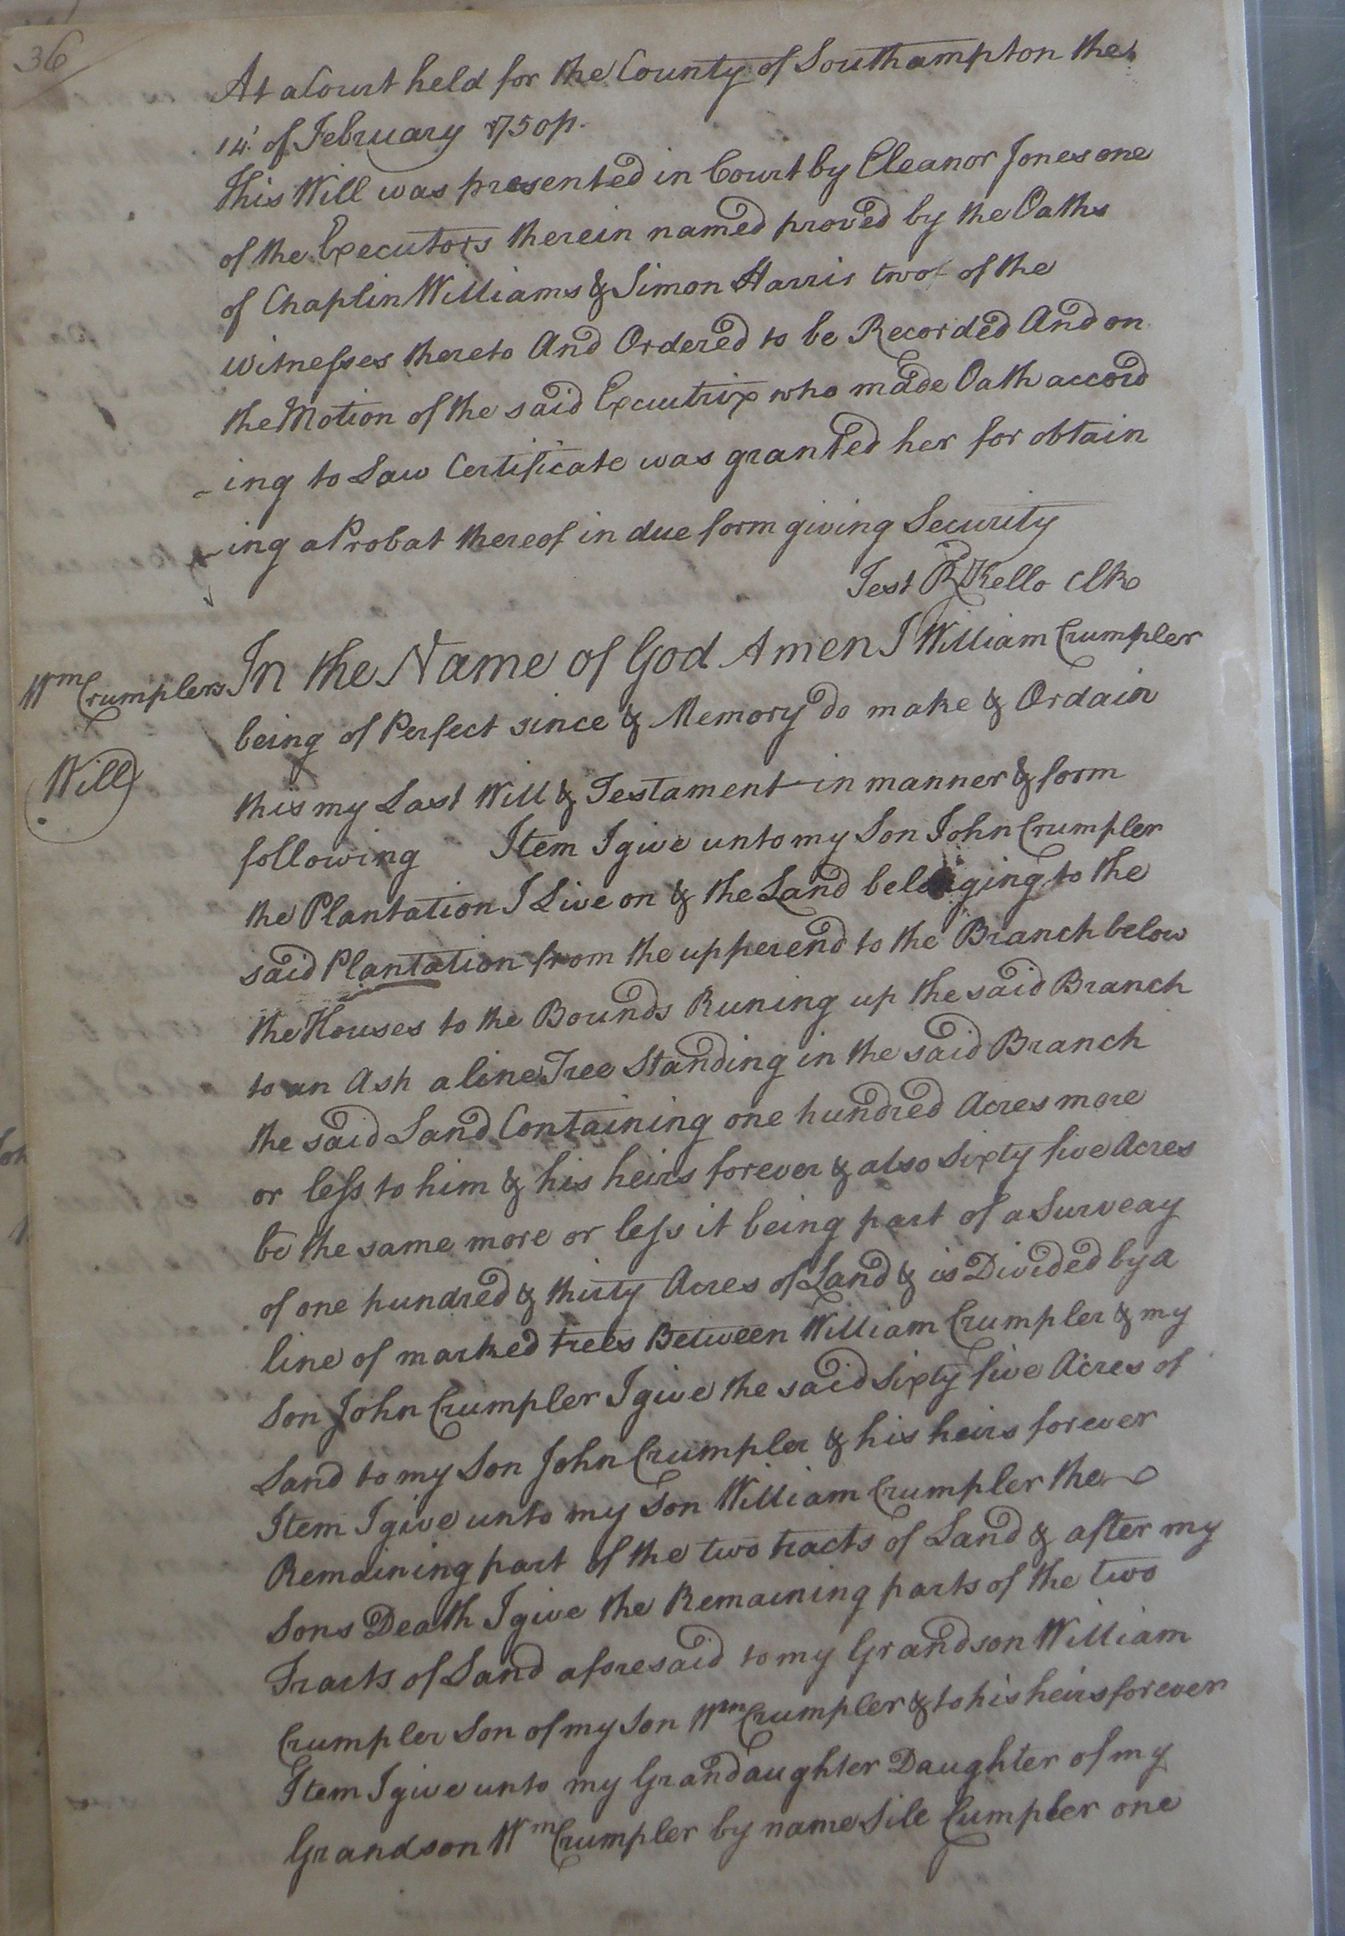 36
At a Court held for the County of Southampton the
14 of February 1750
This Will was presented in Court by Eleanor Jones one
of the Executors therein named proved by the Oaths
of Chaplin Williams & Simon Harris two of the
witnesses thereto And Ordered to be Recorded And on
the Motion of the said Executrix who made Oath accord
-ing to Law Certificate was granted her for obtain
-ing a Probat thereof in due form giving Security
Test R Kello Clk
Wm Crumplers
Will
In the Name of God Amen I William Crumpler
being of Perfect since & Memory do make & Ordain
this my Last Will & Testament in manner & form
following Item I give unto my Son John Crumpler
the Plantation I Live on & the Land belonging to the
said Plantation from the upper end to the Branch below
the Houses to the Bounds Runing up the said Branch
to an Ash a line Tree Standing in the said Branch
the said Land Containing one hundred Acres more
or less to him & his heirs forever & also sixty five Acres
be the same more or less it being part of a Surveay
of one hundred & thirty Acres of Land & is Divided by a
line of marked trees Between William Crumpler & my
Son John Crumpler I give the said sixty five Acres of
Land to my Son John Crumpler & his heirs forever
Item I give unto my Son William Crumpler the
Remaining part of the two tracts of Land & after my
Sons Death I give the Remaining parts of the two
Tracts of Land aforesaid to my Grandson William
Crumpler Son of my Son Wm Crumpler & to his heirs forever
Item I give unto my Grandaughter Daughter of my
Grandson Wm Crumpler by name Sile Cumpler one